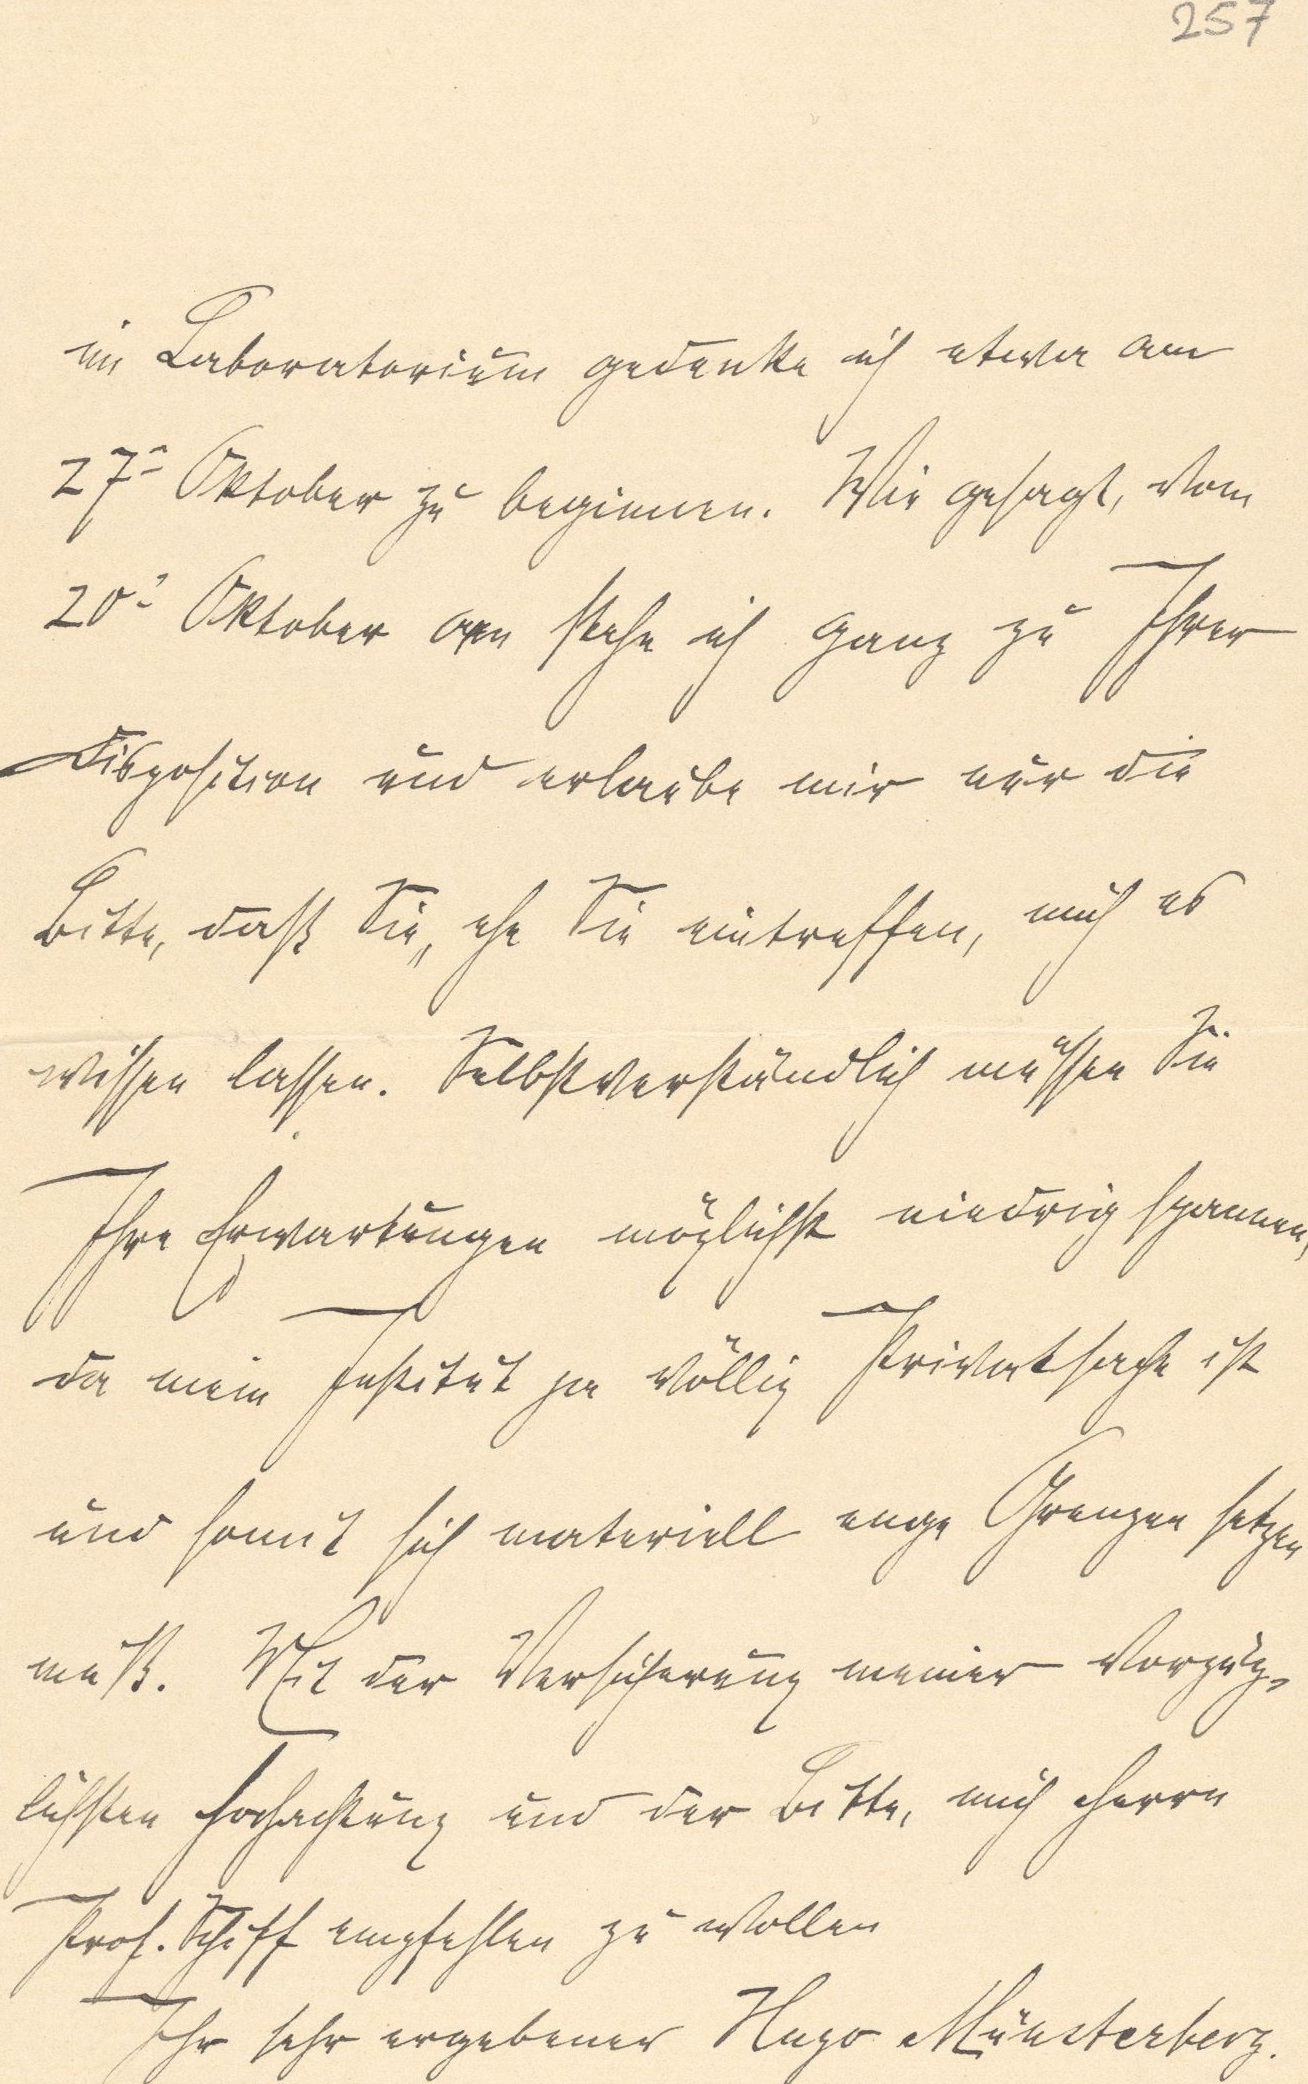 257
im Laboratorium gedenke ich etwa am
27n Oktober zu beginnen. Wie gesagt, vom
20n Oktober an stehe ich ganz zu Ihrer
Disposition und erlaube mir nur die
Bitte, daß Sie, ehe Sie eintreffen, mich es
wissen lassen. Selbstverständlich müssen Sie
Ihre Erwartungen möglichst niedrig spannen,
da mein Institut ja völlig Privatsache ist
und somit sich materiell enge Grenzen setzen
muß. Mit der Versicherung meiner vorzüg-
lichsten Hochachtung und der Bitte, mich Herrn
Prof. Schiff empfehlen zu wollen
Ihr sehr ergebener Hugo Münsterberg.